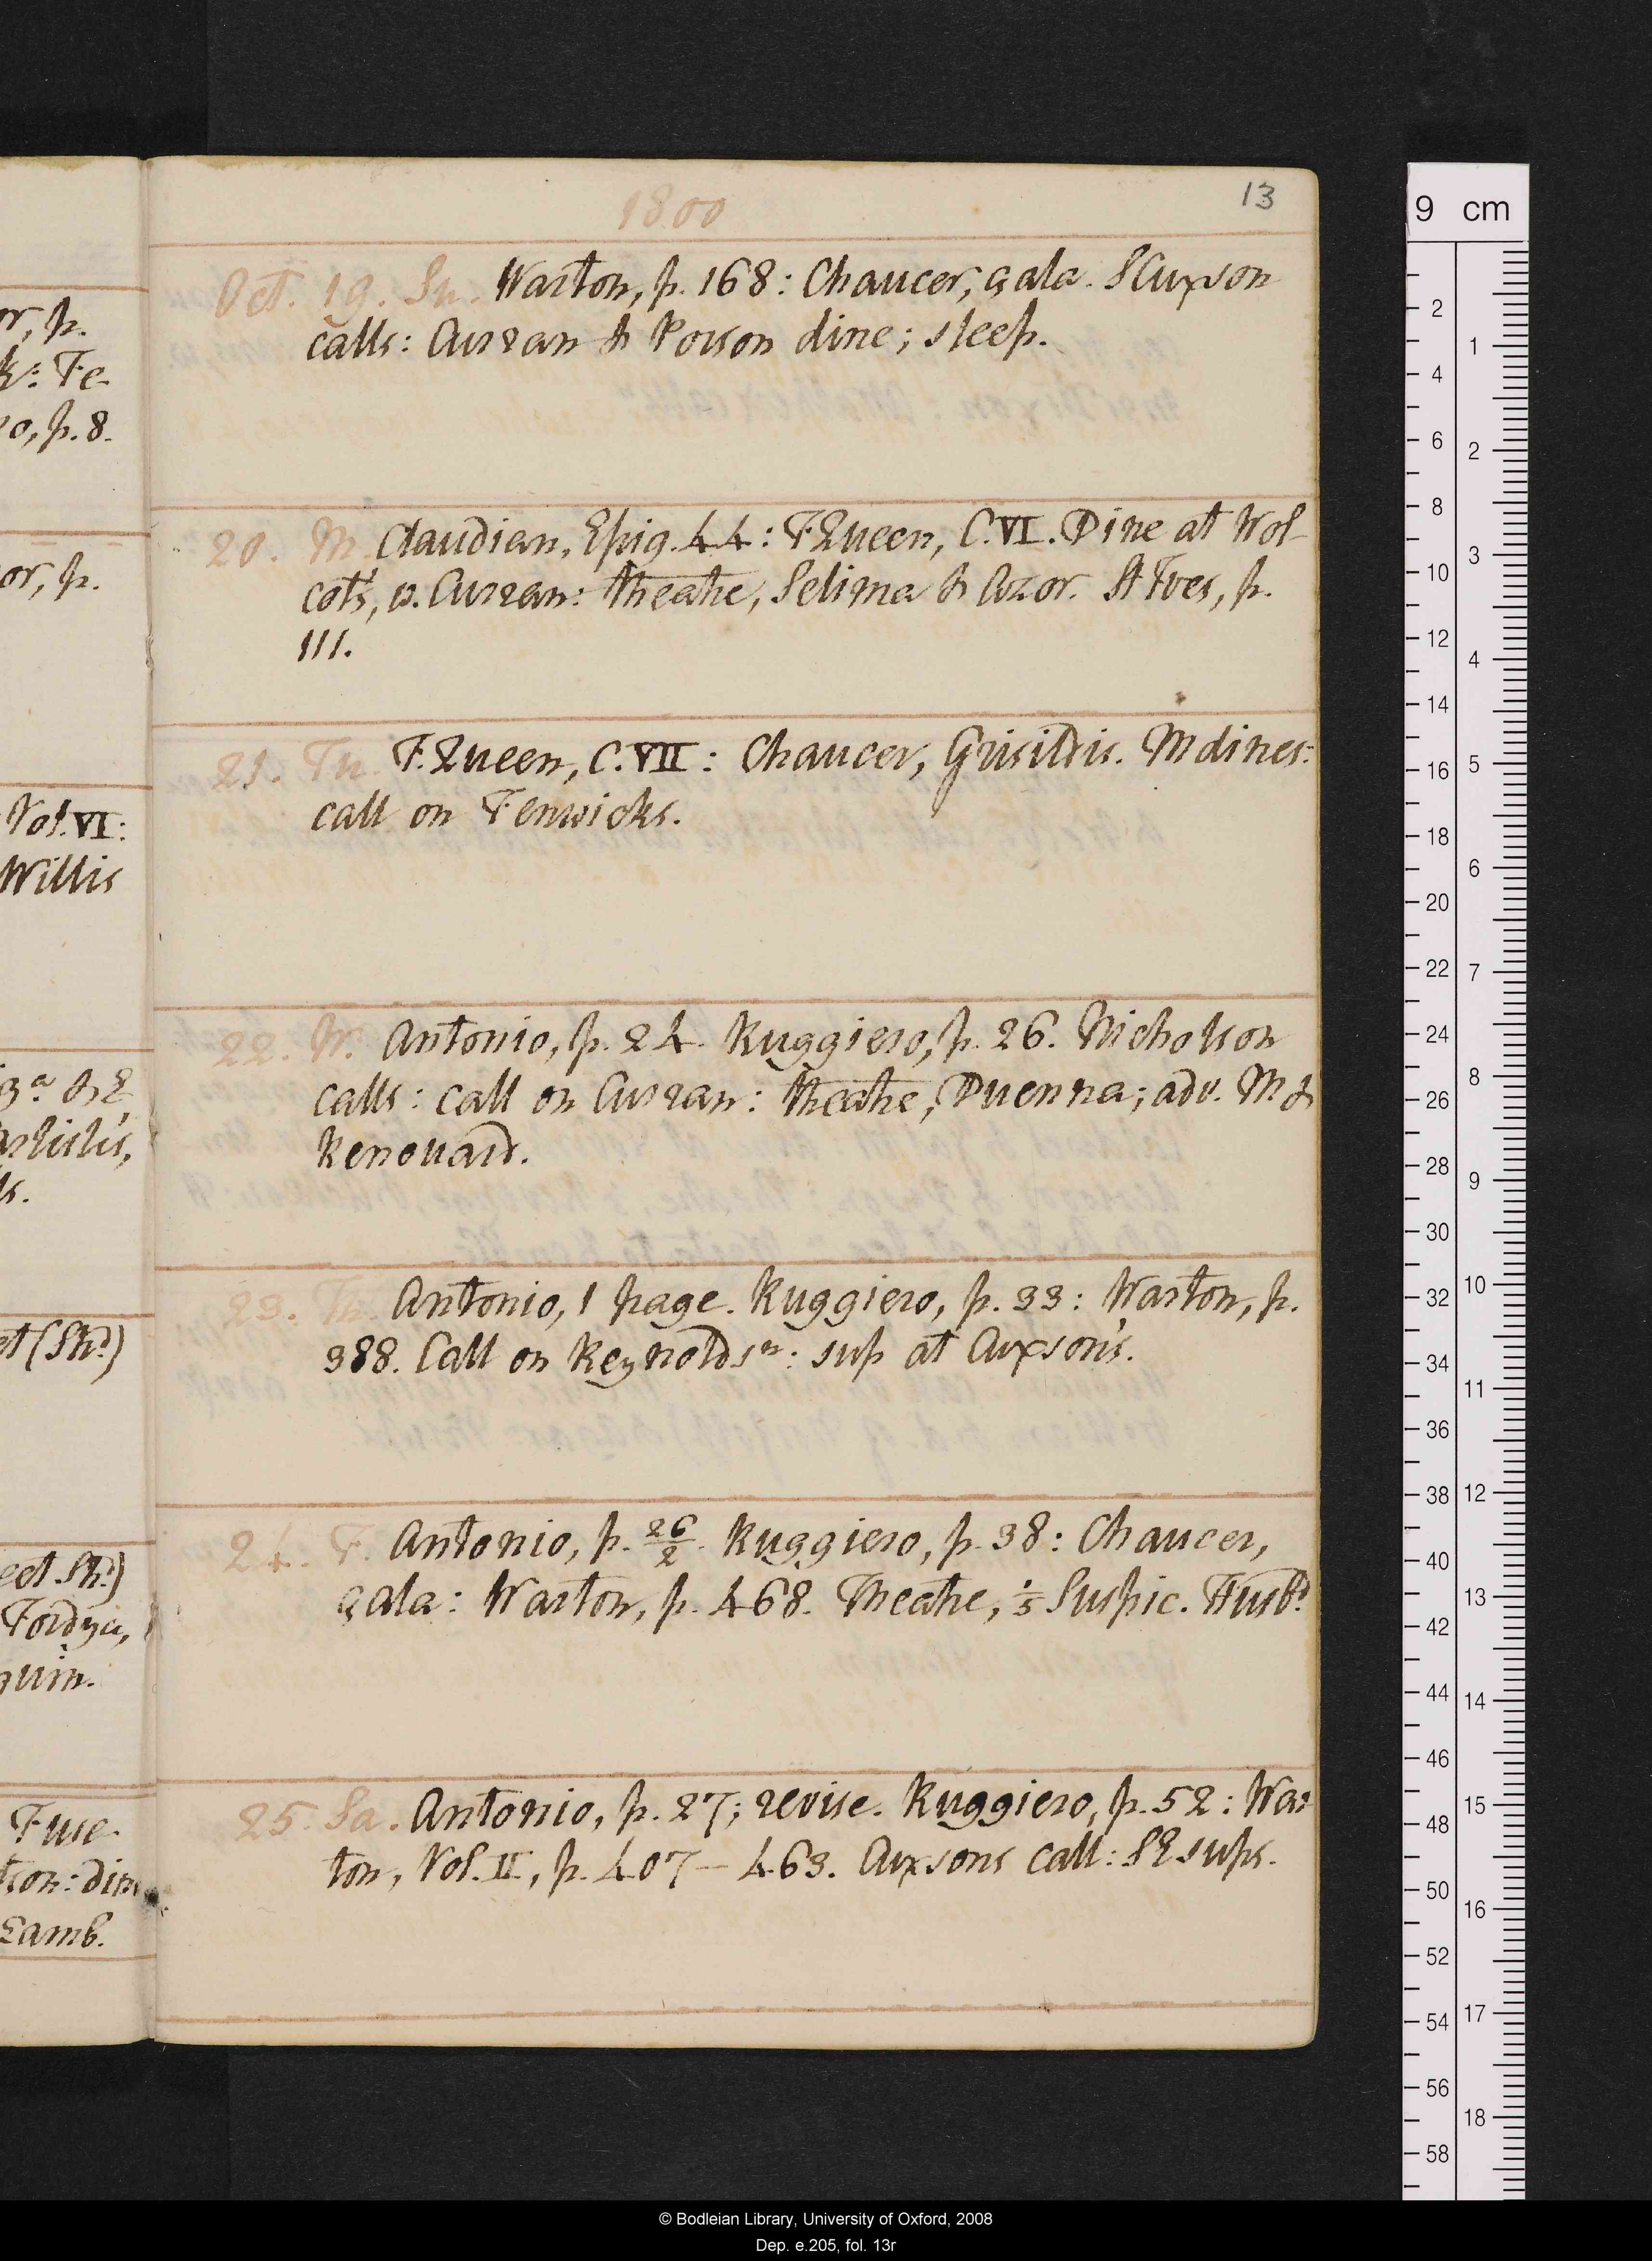 1800
13
Oct. 19. Su. Warton, p. 168: Chaucer, çala. S Cuxson
calls: Curran & Porson dine; sleep.
20. M. Claudian, Epig. 44: F. Queen, C. VI. Dine at Wol-
cot's, w. Curran: theatre, Selima & Azor. St Ives, p.
111.
21. Tu. F. Queen, C. VII: Chaucer, Grisildis. M dines:
call on Fenwicks.
22. W. Antonio, p. 24. Ruggiero, p. 26. Nicholson
calls: call on Curran: theatre, Duenna; adv. M &
Renouard.
23. Th. Antonio, 1 page. Ruggiero, p. 33: Warton, p.
388. Call on Reynolds n: sup at Cuxson's.
24. F. Antonio, p. 26/2. Ruggiero, p. 38: Chaucer,
çala: Warton, p. 468. Theatre, 1/5 Suspic. Husbd.
25. Sa. Antonio, p. 27; revise. Ruggiero, p. 52: War
ton, Vol. II, p. 407–463. Cuxsons call: SE sups.
or, p.
k: Fe-
o, p. 8.
or, p.
Vol. VI:
Willis
3a & E
ls.
et (Shd)
ect. Shd)
Fordyce,
Fuse-
son: din
Lamb.
9 cm
2
4
6
8
10
12
14
16
18
20
22
24
26
28
30
32
34
36
38
40
42
44
46
48
50
52
54
56
58
1
2
3
4
5
6
7
8
9
10
11
12
13
14
15
16
17
18
© Bodleian Library, University of Oxford, 2008
Dep. e.205, fol. 13r